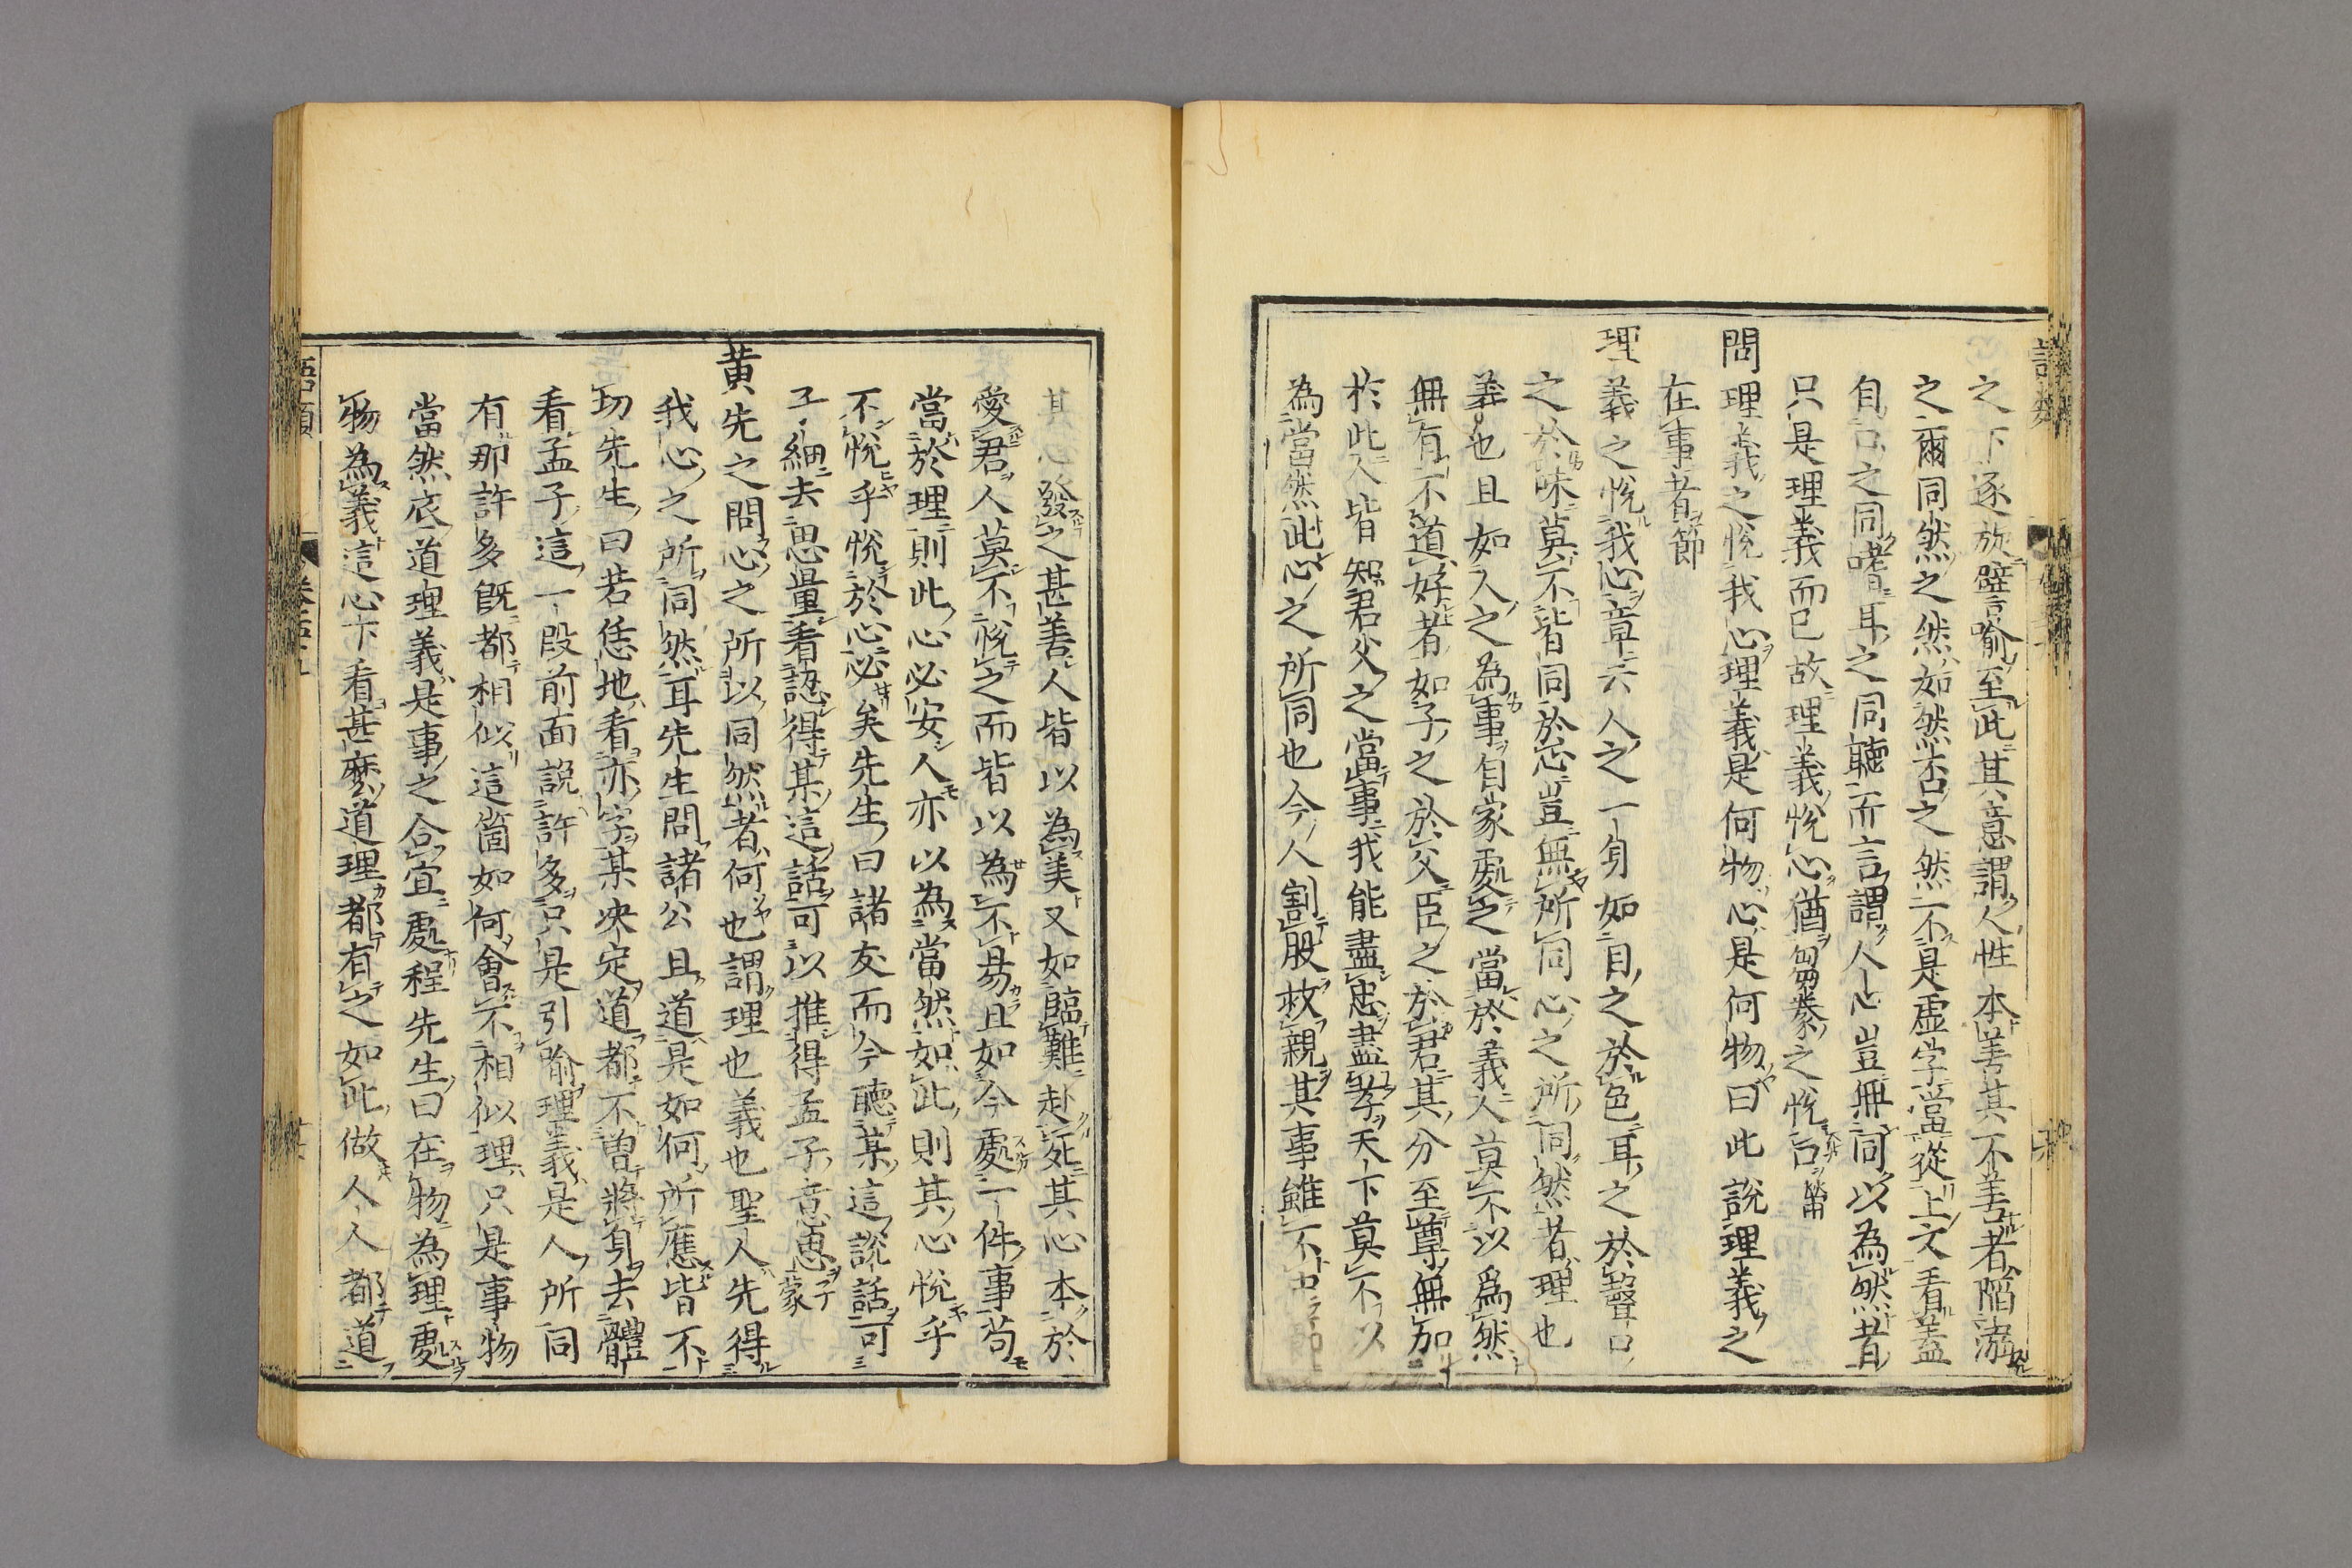 之下逐旋譬喻至此其意謂人性本善其不善者陷溺
之爾同然之然如然否之然不是虛字當從上文看蓋
自口之同嗜耳之同聽而言謂人心豈無同以為然者
只是理義而已故理義悅心猶芻豢之悅口
問理義之悅我心理義是何物心是何物曰此說理義之
在事者節
理義之悅我心章云人之一身如目之於色耳之於聲口
之於味莫不皆同於心豈無所同心之所同然者理也
義也且如人之為事自家處之當於義人莫不以為然
無有不道好者如子之於父臣之於君其分至尊無加
於此人皆知君父之當事我能盡忠盡孝天下莫不以
為當然此心之所同也今人割股救親其事雖不中節
其心發之甚善人皆以為美又如臨難赴死其心本於
愛君人莫不悅之而皆以為不易且如今處一件事苟
當於理則此心必安人亦以為當然如此則其心悅乎
不悅乎悅於心必矣先生曰諸友而今聽某這說話可
子細去思量看認得某這話可以推得孟子意思蒙
黃先之問心之所以同然者何也謂理也義也聖人先得
我心之所同然耳先生問諸公且道是如何所應皆不
切先生曰若恁地看亦字某決定道都不曾將身去體
看孟子這一段前面說許多只是引喻理義是人所同
有那許多旣都相似這箇如何會不相似理只是事物
當然底道理義是事之合宜處程先生曰在物為理處
物為義這心下看甚麼道理都有之如此做人人都道
語類